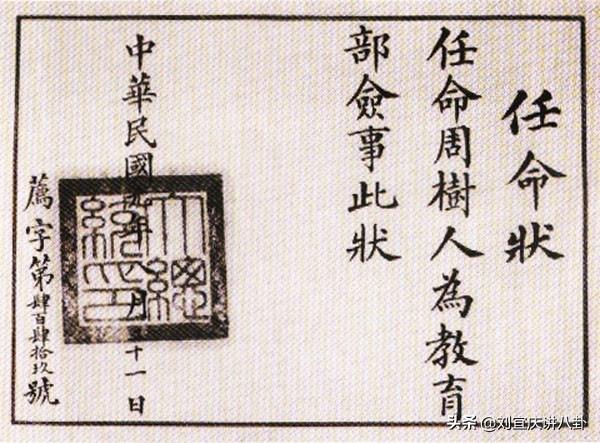 任命狀
任命周樹人為教育
部僉事此狀
中華民國年月十一日
大總統印
薦字第肆百肆拾玖號
头条 @刘宣庆讲八卦